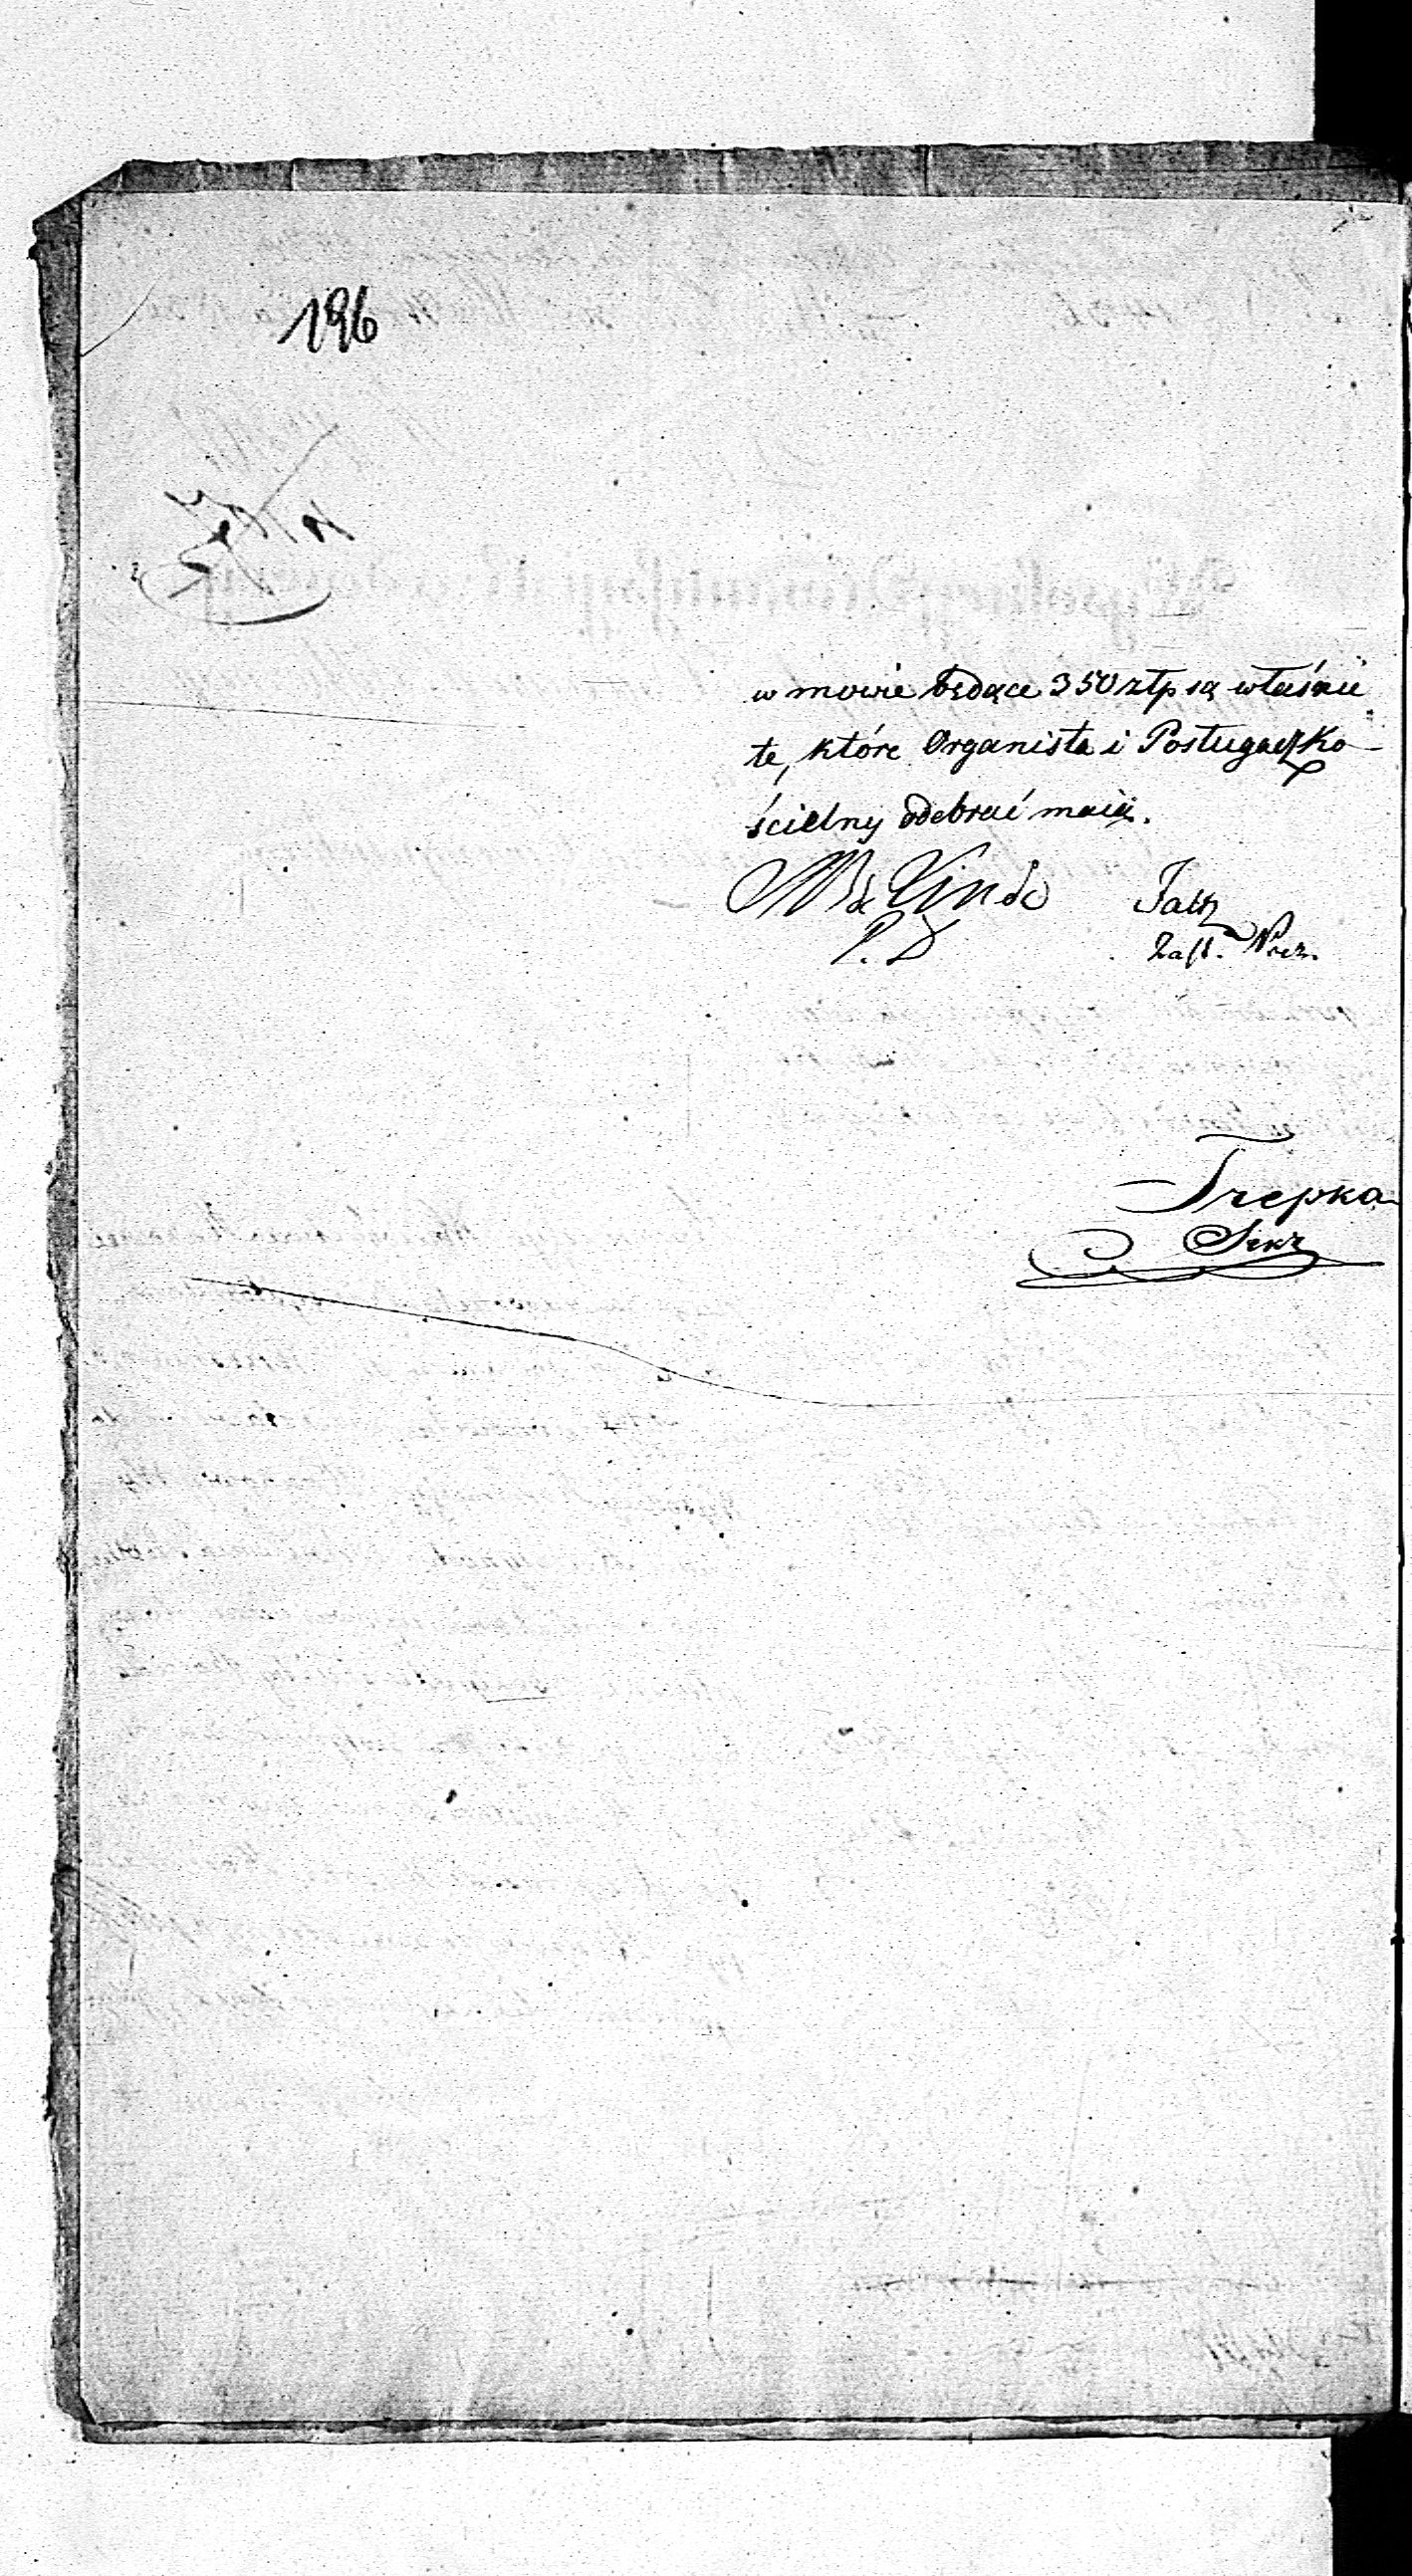 196
w mowie będące 350 złp są właśnie
te, które Organista i Posługacz Ko-
ścielny odebrać maią.
P. D
Zast. Prez.
Trepka
Sekr